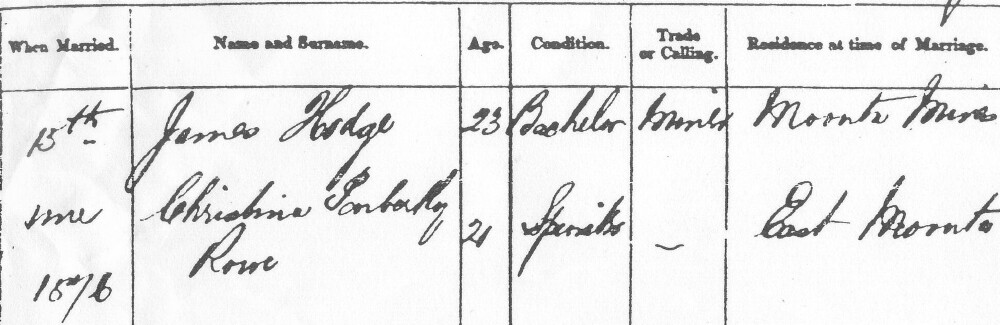 When Married. Name and Surname. Age. Condition. Trade or Calling. Residence at time of Marriage.
15th James Hodge 23 Bachelor Miner Moonta Mines
Christina 21 Spinster East Moonta
Rowe